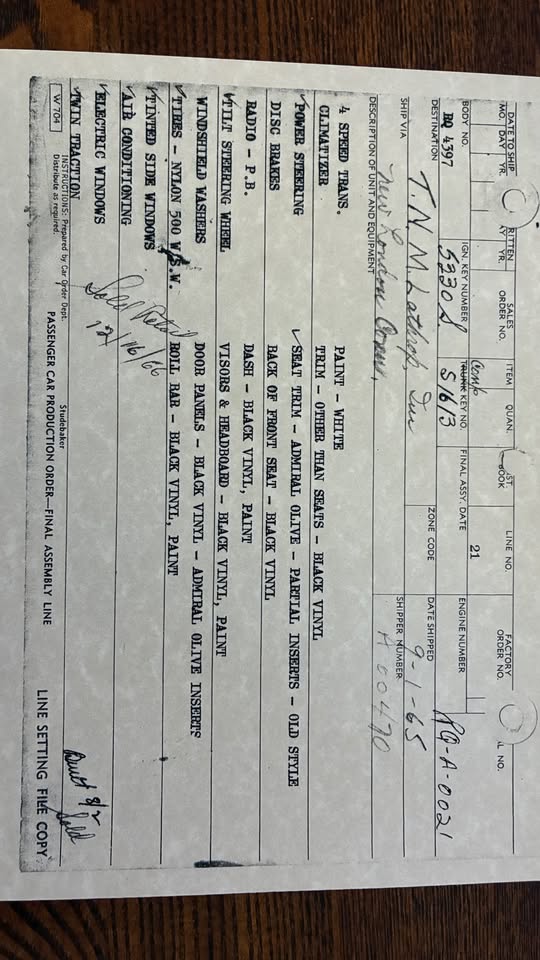 DATE TO SHIP
MO. DAY YR.
RITTEN
AY YR.
SALES
ORDER NO.
ITEM
QUAN.
ST.
OOK
LINE NO.
FACTORY
ORDER NO.
L NO.
BODY NO.
RQ 4397
IGN. KEY NUMBER
5330 S
Comp
TRUNK KEY NO.
S/6/3
FINAL ASSY. DATE
21
ENGINE NUMBER
RQ-A-0021
DESTINATION
T. N. M. Lathrop, Inc
ZONE CODE
DATE SHIPPED
9-1-65
SHIP VIA
New London Conn,
SHIPPER NUMBER
A 00470
DESCRIPTION OF UNIT AND EQUIPMENT
4 SPEED TRANS. PAINT - WHITE
CLIMATIZER TRIM - OTHER THAN SEATS - BLACK VINYL
✓POWER STEERING ✓SEAT TRIM - ADMIRAL OLIVE - PARTIAL INSERTS - OLD STYLE
DISC BRAKES BACK OF FRONT SEAT - BLACK VINYL
RADIO - P.B. DASH - BLACK VINYL, PAINT
✓TILT STEERING WHEEL VISORS & HEADBOARD - BLACK VINYL, PAINT
WINDSHIELD WASHERS DOOR PANELS - BLACK VINYL - ADMIRAL OLIVE INSERTS
✓TIRES - NYLON 500 W.S.W. ROLL BAR - BLACK VINYL, PAINT
✓TINTED SIDE WINDOWS
✓AIR CONDITIONING
✓ELECTRIC WINDOWS
TWIN TRACTION
Sold Retail
12/16/66
Built 8/2
Sold
W 704
INSTRUCTIONS: Prepared by Car Order Dept.
Distribute as required.
Studebaker
PASSENGER CAR PRODUCTION ORDER—FINAL ASSEMBLY LINE
LINE SETTING FILE COPY